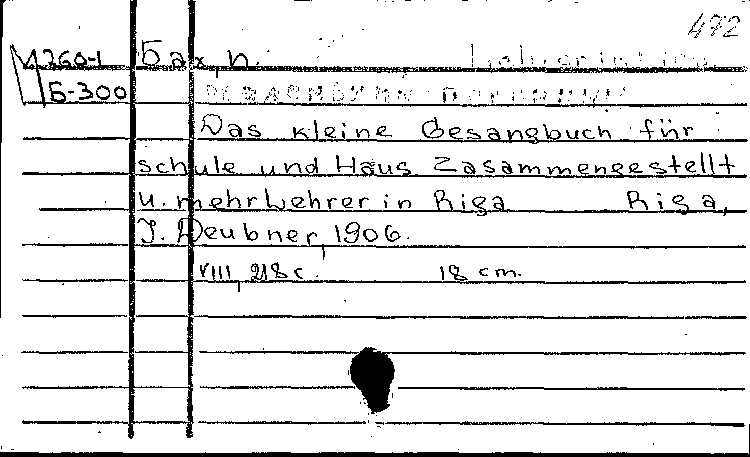 472
И260-1 Бах, п.
Б-300
Das kleine Gesangbuch für
schule und Haus Zasammengestellt
u. mehr Lehrer in Riga Riga,
J. Deubner, 1906.
VIII, 218 c. 18 cm.